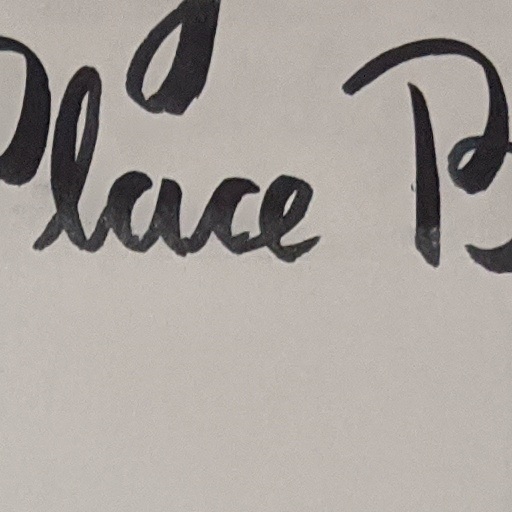 Place B